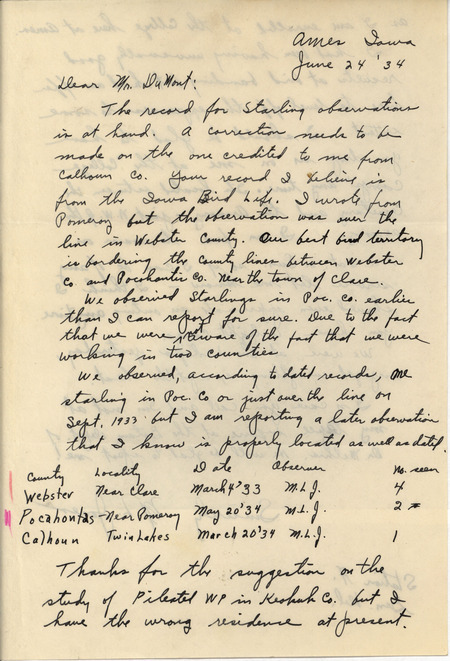 Ames Iowa
June 24 '34
Dear Mr. DuMont:
The record for Starling observations
is at hand. A correction needs to be
made on the one credited to me from
Calhoun Co. Your record I believe is
from the Iowa Bird Life. I wrote from
Pomeroy but the observation was over the
line in Webster County. Our best bird territory
is bordering the County lines between Webster
Co and Pocohantis Co. Near the town of Clare.
We observed Starlings in Poc. Co. earlier
than I can report for sure. Due to the fact
that we were not aware of the fact that we were
working in two counties
We observed, according to dated records, one
starling in Poc. Co or just over the line on
Sept. 1933 but I am reporting a later observation
that I know is properly located as well as dated.
County Locality Date Observer No. seen
Webster Near Clare March 4 '33 M.L.J. 4
Pocahontas Near Pomeroy May 20 '34 M.L.J. 2 *
Calhoun Twin Lakes March 20 '34 M.L.J. 1
Thanks for the suggestion on the
study of Pileated WP in Keokuk Co. but I
have the wrong residence at present.